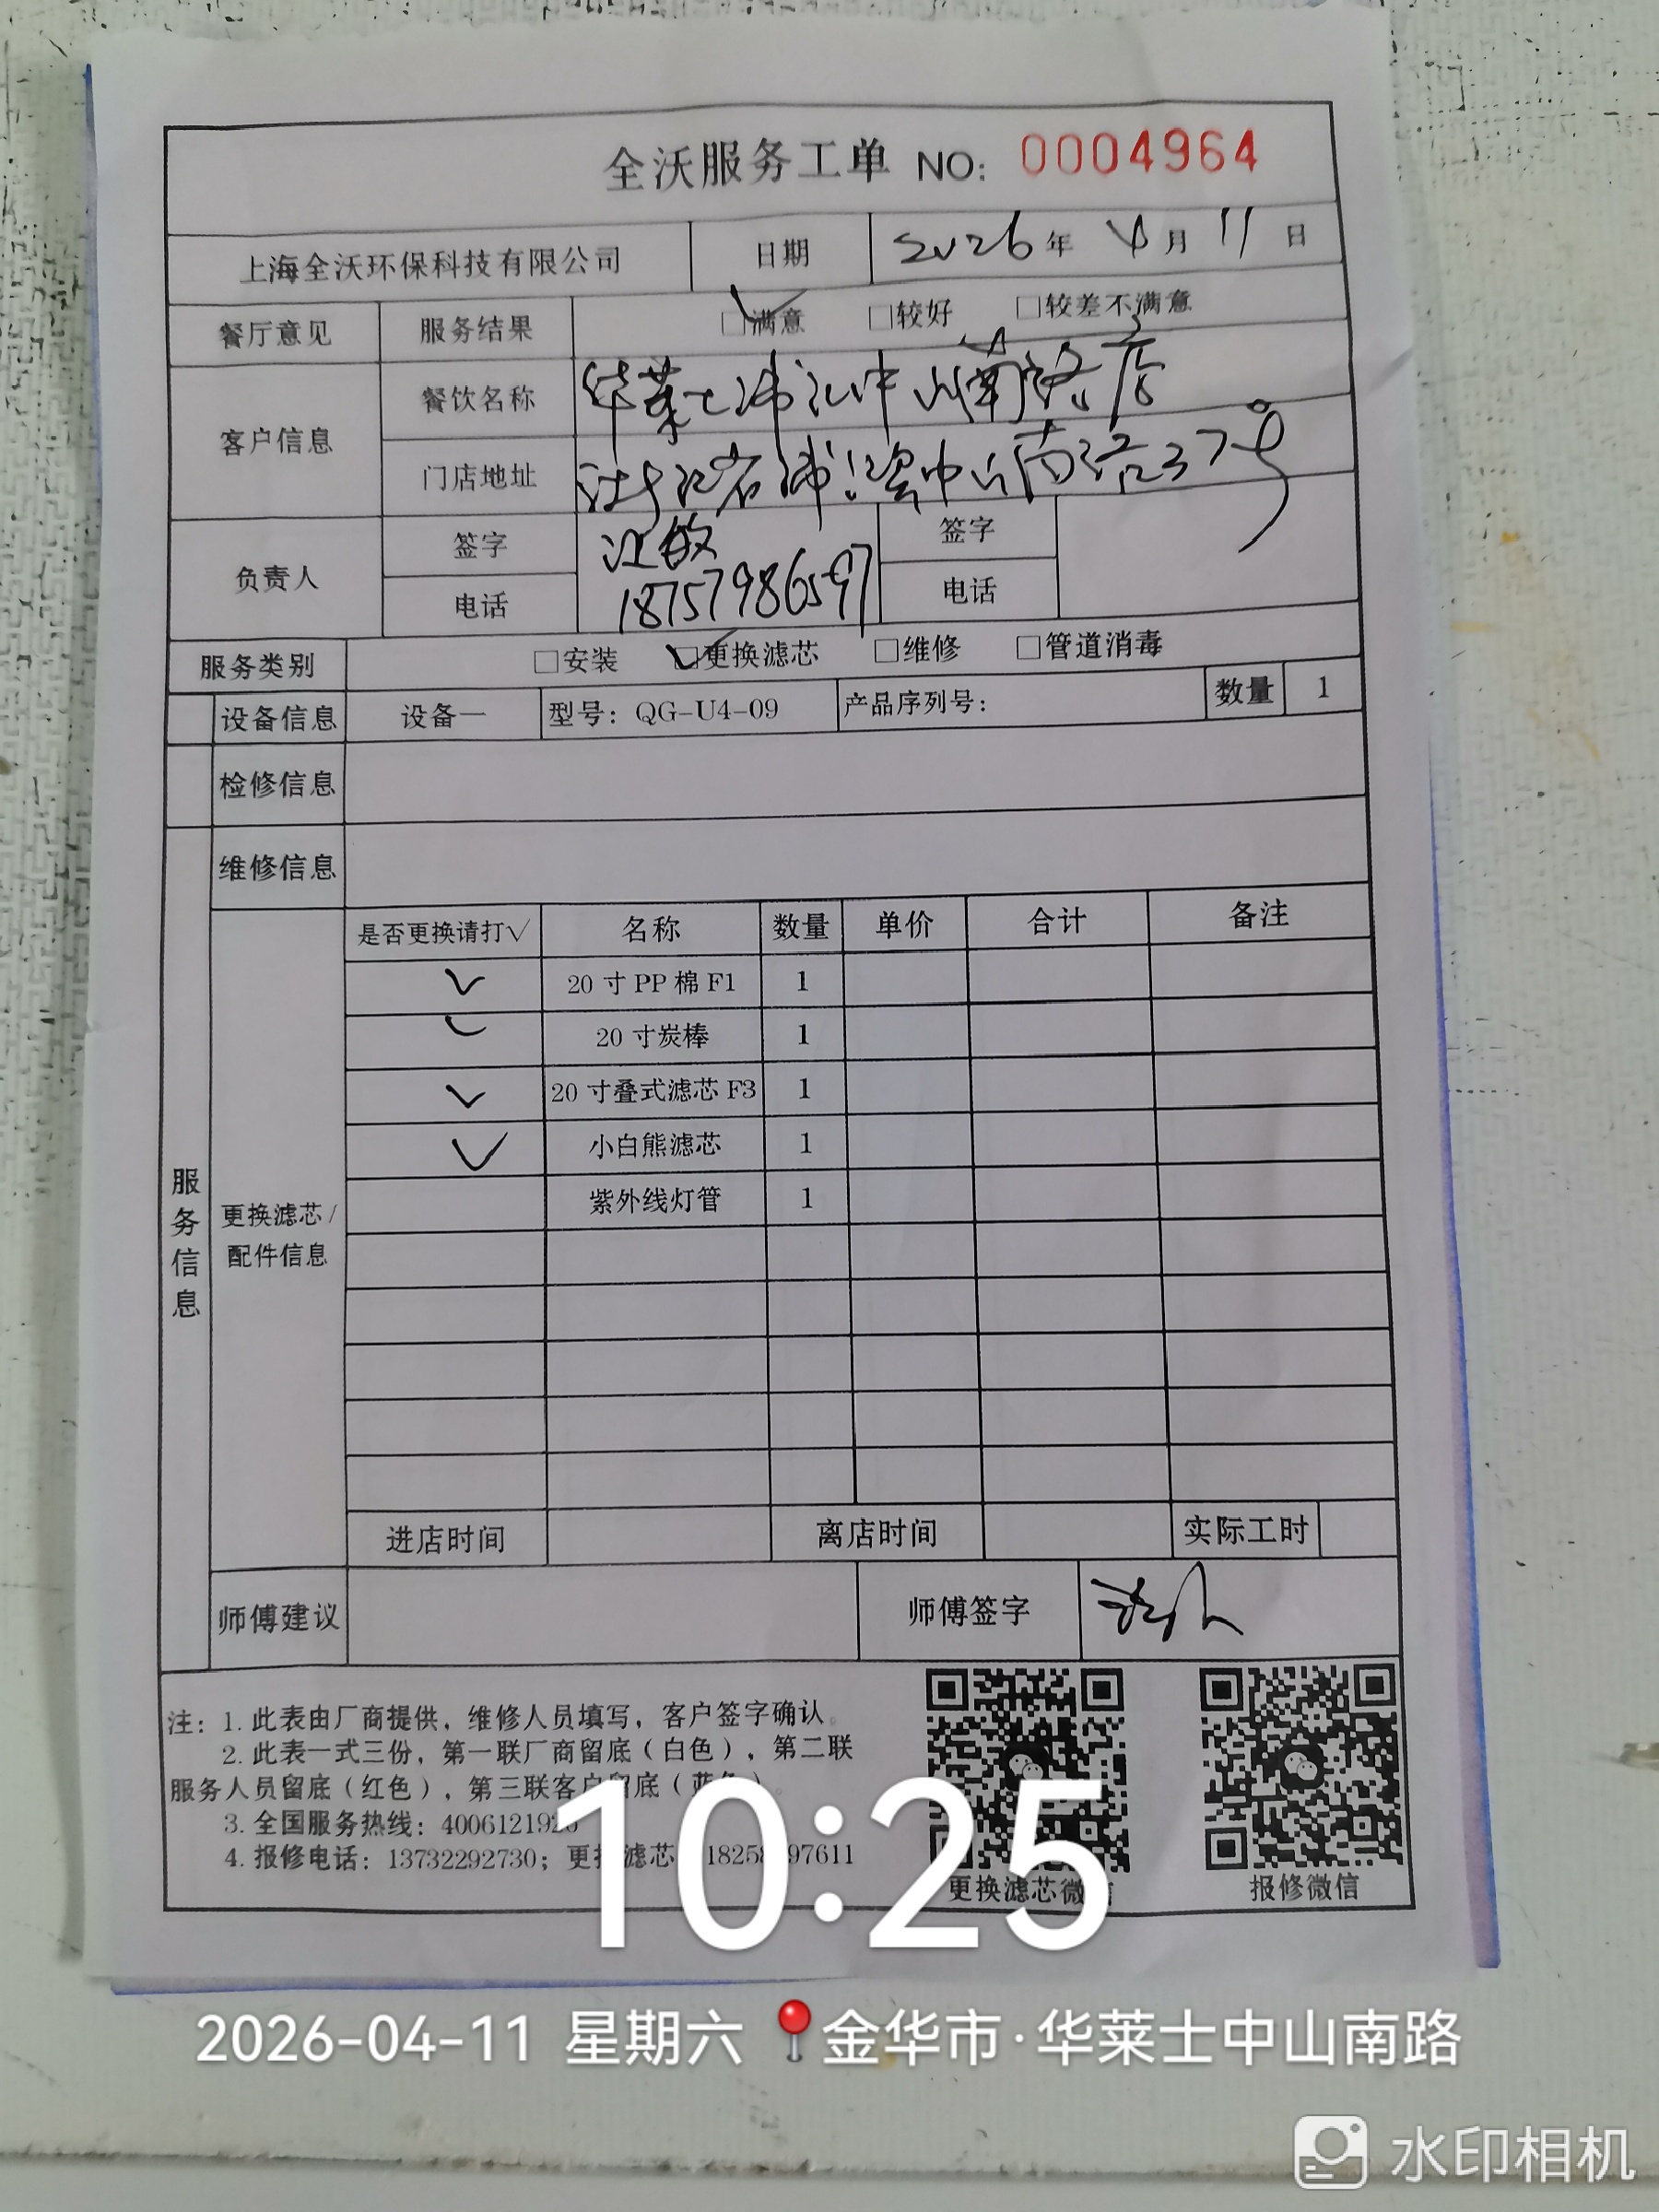 全沃服务工单 NO: 0004964
上海全沃环保科技有限公司 日期 2026年 4月 11日
餐厅意见 服务结果 ☑满意 □较好 □较差不满意
客户信息 餐饮名称 华莱士浦江中山南路店
门店地址 浙江省浦江县中山南路37号
负责人 签字 江敏 签字
电话 18757986597 电话
服务类别 □安装 ☑更换滤芯 □维修 □管道消毒
设备信息 设备一 型号：QG-U4-09 产品序列号： 数量 1
检修信息
维修信息
服务信息
更换滤芯/配件信息
是否更换请打√ 名称 数量 单价 合计 备注
√ 20寸PP棉F1 1
√ 20寸炭棒 1
√ 20寸叠式滤芯F3 1
√ 小白熊滤芯 1
紫外线灯管 1
进店时间 离店时间 实际工时
师傅建议 师傅签字
注：1. 此表由厂商提供，维修人员填写，客户签字确认。
2. 此表一式三份，第一联厂商留底（白色），第二联
服务人员留底（红色），第三联客户留底（蓝色）。
3. 全国服务热线：400612192
4. 报修电话：13732292730；更换滤芯 1825 97611
更换滤芯微信 报修微信
10:25
2026-04-11 星期六 金华市·华莱士中山南路
水印相机